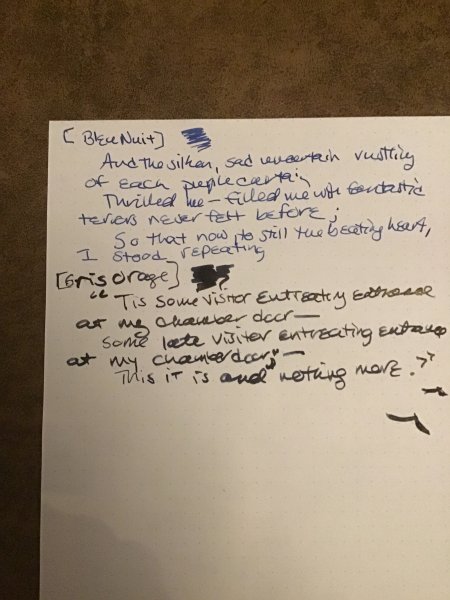 [Bleu Nuit]
And the silken, sad uncertain rustling
of each purple curtain
Thrilled me - filled me with fantastic
terrors never felt before;
So that now, to still the beating heart,
I stood repeating
[Gris Orage]
"Tis some visitor entreating entrance
at my chamber door—
Some late visitor entreating entrance
at my chamber door;—
This it is and nothing more."